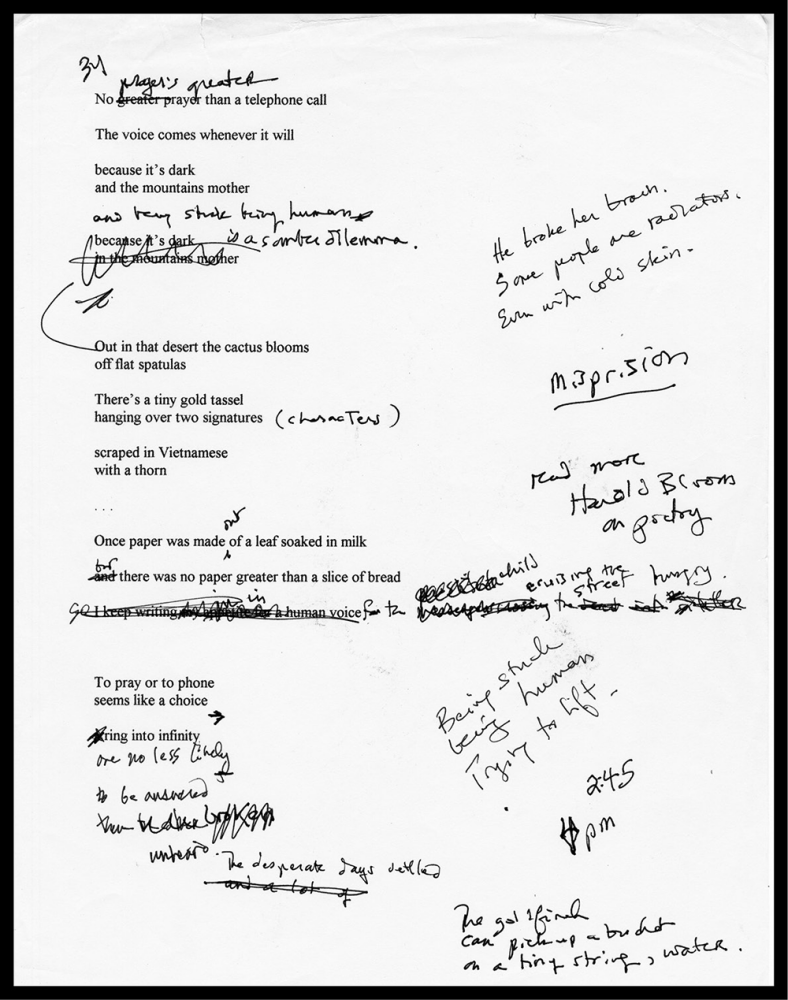 34
prayer's greater
No greater prayer than a telephone call
The voice comes whenever it will
because it's dark
and the mountains mother
and being stuck being human
because it's dark is a somber dilemma.
in the mountains mother
Out in that desert the cactus blooms
off flat spatulas
There's a tiny gold tassel
hanging over two signatures (characters)
scraped in Vietnamese
with a thorn
...
out
Once paper was made of a leaf soaked in milk
but
and there was no paper greater than a slice of bread
in
So I keep writing a human voice for the
child cruising the street hungry.
To pray or to phone
seems like a choice
ring into infinity
are no less likely
to be answered
unheard.
The desperate days
and a lot of
He broke her brain.
Some people are radiators.
Even with cold skin.
Misprision
read more
Harold Bloom
on poetry
Being stuck
being human
Trying to lift.
2:45
4 pm
The goldfinch
can pick up a bucket
on a tiny string, water.